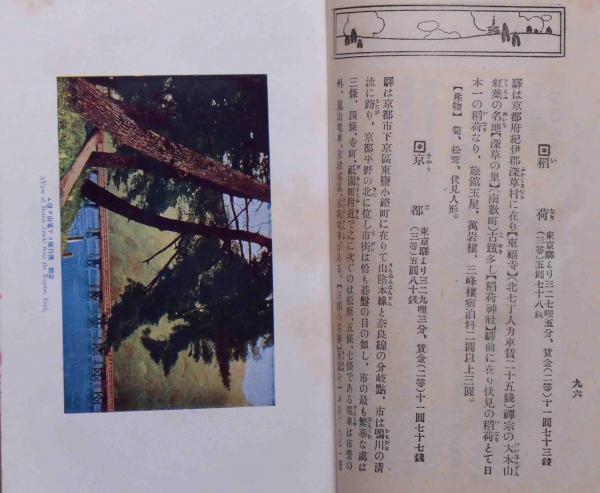 九六
稻荷 東京驛より三二七哩五分、賃金(二等)十一圓七十三錢
(三等)五圓七十八錢
驛は京都府紀伊郡深草村に在り【東福寺】北七丁人力車賃二十五錢)禪宗の大本山
紅葉の名地【深草の里】(南數町)古蹟多し【稻荷神社】驛前に在り伏見の稻荷とて日
本一の稻荷なり、旅館玉屋、萬岩樓、三峰樓宿泊料二圓以上三圓。
【產物】筍、松蕈、伏見人形。
京都 東京驛より三二九哩三分、賃金(二等)十一圓七十七錢
(三等)五圓八十錢
驛は京都市下京區東鹽小路町に在りて山陰本線と奈良線の分岐點、市は鴨川の淸
流に跨り、京都平野の北に位し市街は恰も碁盤の目の如し、市の最も繁華な處は
三條、四條、寺町、祇園町附近で之に次ぐのは松原、五條、七條である電車は市營の
外、嵐山電車、京津電氣、京阪電車がある、【京都の名勝】
A View of from the